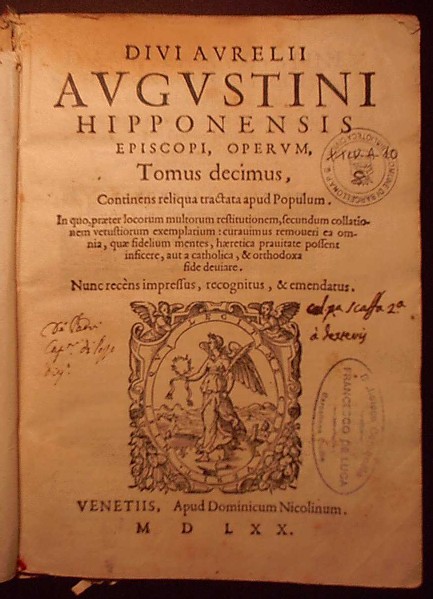 DIVI AVRELII
AVGVSTINI
HIPPONENSIS
EPISCOPI, OPERVM,
Tomus decimus,
Continens reliqua tractata apud Populum.
In quo, præter locorum multorum restitutionem, secundum collatio-
nem vetustiorum exemplarium: curauimus remoueri ea om-
nia, quæ fidelium mentes, hæretica prauitate possent
inficere, aut a catholica, & orthodoxa
fide deuiare.
Nunc recèns impressus, recognitus, & emendatus.
VENETIIS, Apud Dominicum Nicolinum.
M D LXX.
COMUNE DI BARCELLONA P. G.
A 10
scaffa 2ª
à
FRANCESCO DE LUCA